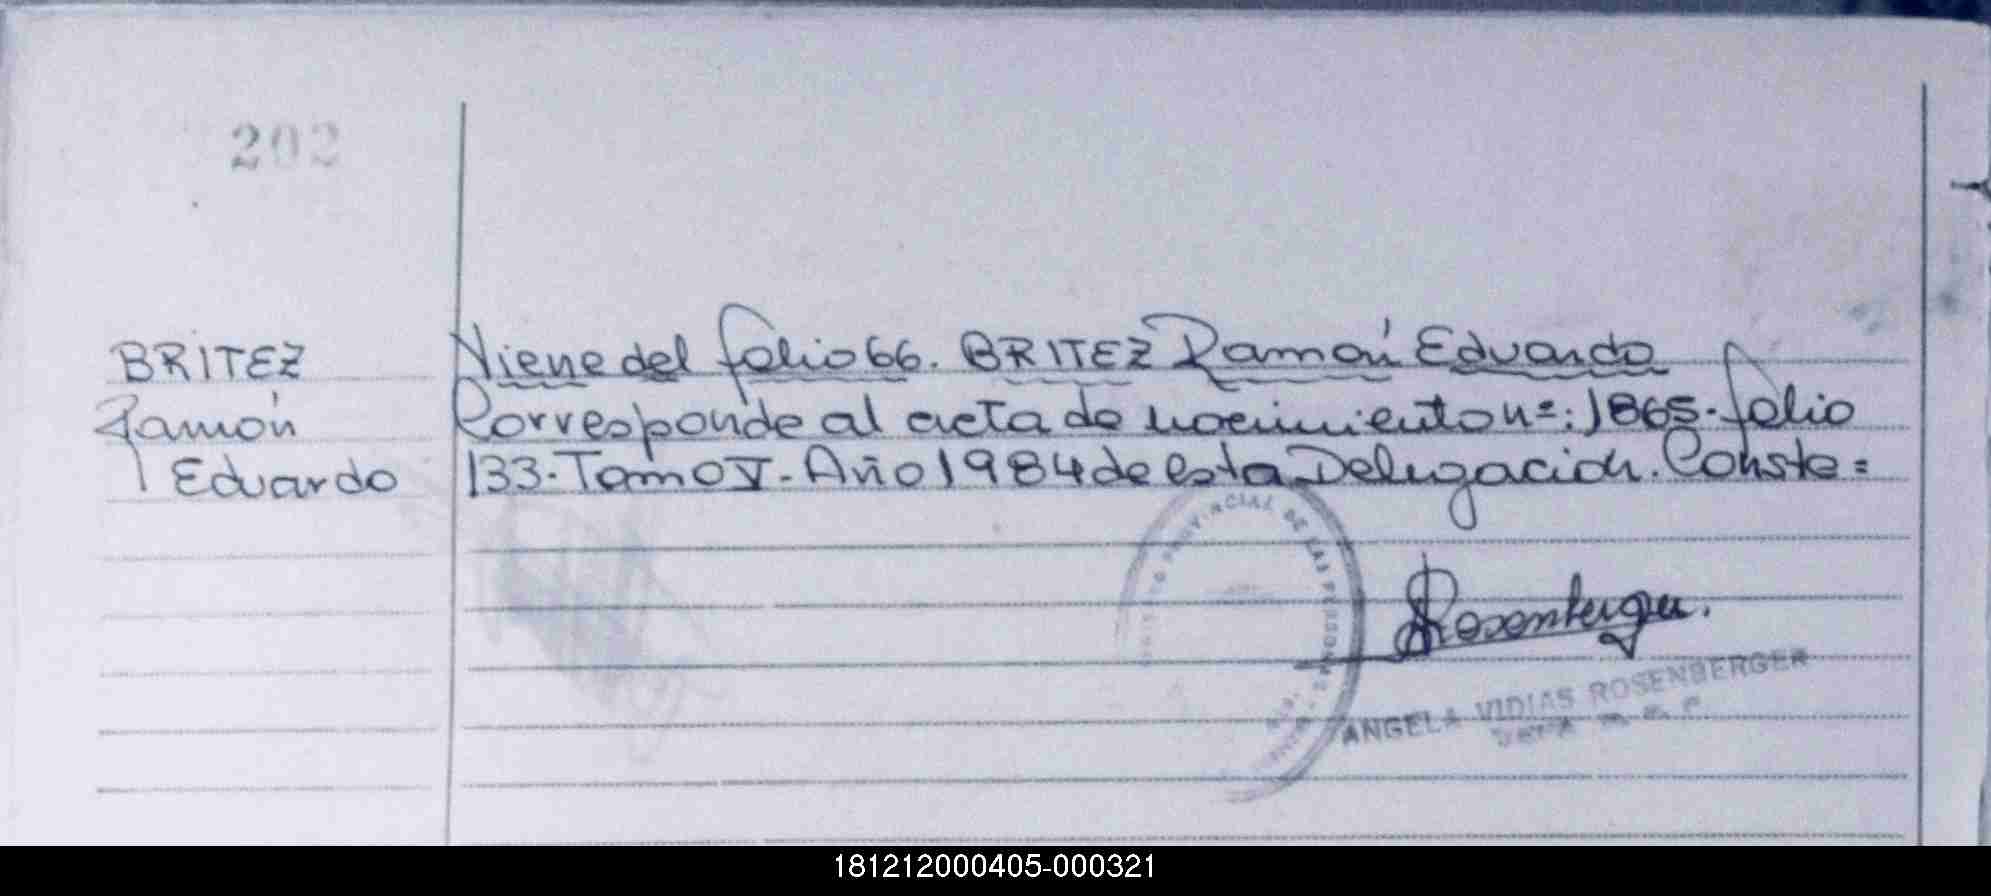 202
BRITEZ
Ramón
Eduardo
Viene del folio 66. BRITEZ Ramón Eduardo
Corresponde al acta de nacimiento nº: 1865. folio
133. Tomo V. Año 1984 de esta Delegación. Conste =
PROVINCIAL DE LAS PERSONAS
Rosenberger.
ANGELA VIDIAS ROSENBERGER
181212000405-000321